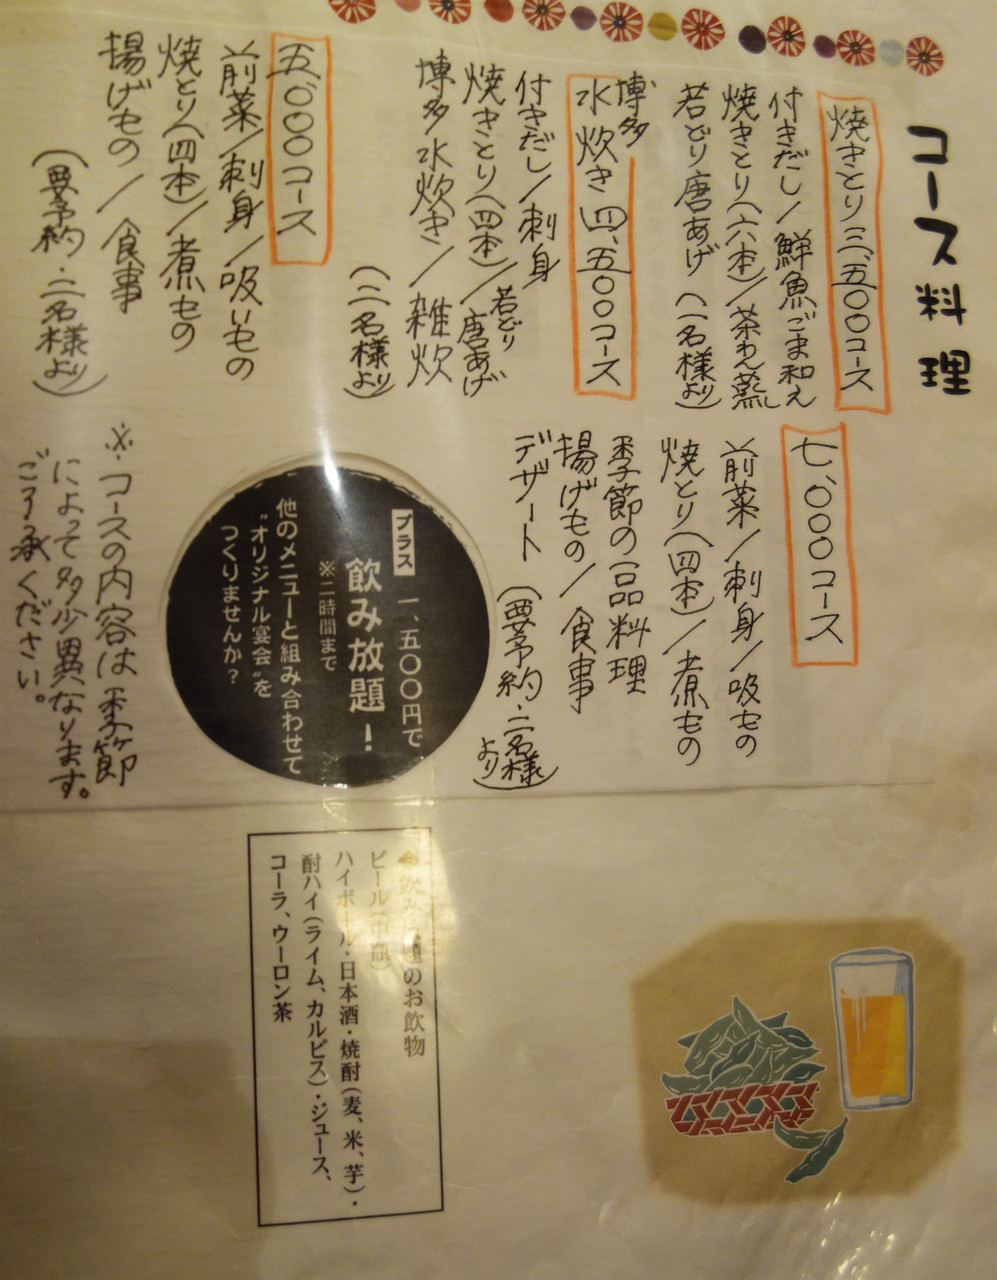 コース料理
焼きとり三、五〇〇コース
付きだし/鮮魚ごま和え
焼きとり(六本)/茶わん蒸し
若どり唐あげ(一名様より)
博多
水炊き四、五〇〇コース
付きだし/刺身
焼きとり(四本)/若どり唐あげ
博多水炊き/雑炊
(二名様より)
五、〇〇〇コース
前菜/刺身/吸いもの
焼とり(四本)/煮もの
揚げもの/食事
(要予約・二名様より)
七、〇〇〇コース
前菜/刺身/吸もの
焼とり(四本)/煮もの
季節の一品料理
揚げもの/食事
デザート(要予約・二名様より)
プラス 一、五〇〇円で
飲み放題!
※二時間まで
他のメニューと組み合わせて
"オリジナル宴会"を
つくりませんか?
※コースの内容は季節
によって多少異なります。
ご了承ください。
飲み放題のお飲物
ビール(中瓶)
ハイボール・日本酒・焼酎(麦、米、芋)・
酎ハイ(ライム、カルピス)・ジュース、
コーラ、ウーロン茶